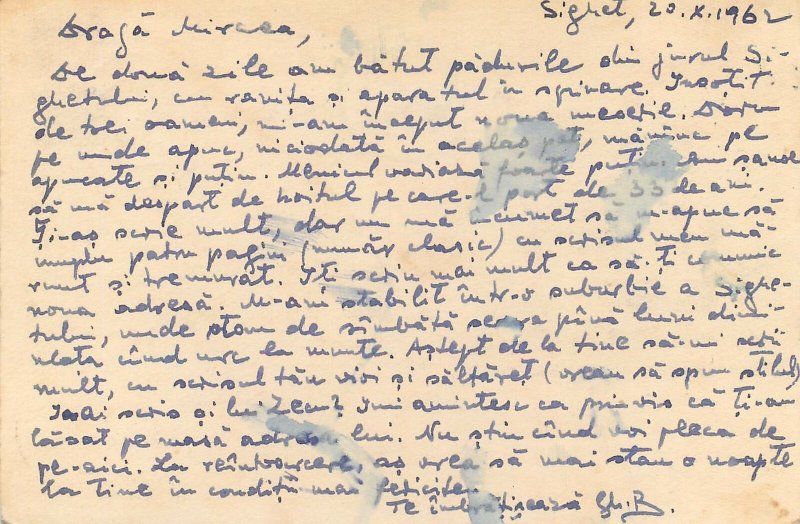 Sighet, 20.X.1962
Dragă Mircea,
De două zile am bătut pădurile din jurul Si-
ghetului, cu ranița și aparatul în spinare. Însoțit
de trei oameni, mi-am început noua meserie. Dorm
pe unde apuc, niciodată în același pat, mănânc pe
apucate și puțin. Meniul variază foarte puțin. Am șanse
să mă despart de hoitul pe care-l port de 33 de ani.
Ți-aș scrie mult, dar nu mă încumet să m-apuc să
umplu patru pagini (număr clasic) cu scrisul meu mă-
runt și tremurat. Îți scriu mai mult ca să-ți comunic
noua adresă. M-am stabilit într-o suburbie a Sighe-
tului, unde stau de sâmbătă seara până luni dimi-
neața când urc la munte. Aștept de la tine să-mi scrii
mult, cu scrisul tău viu și săltăreț (vream să spun stilul)
I-ai scris și lui Zecu? Îmi amintesc ca prin vis că ți-am
lăsat pe masă adresa lui. Nu știu când voi pleca de
pe-aici. La reîntoarcere, aș vrea să mai stau o noapte
la tine în condiții mai fericite.
Te îmbrățișează Gh.